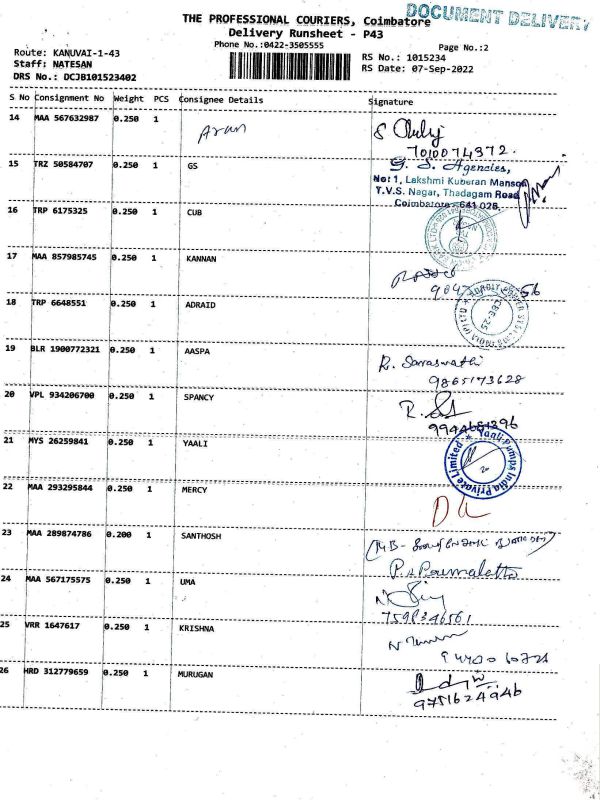 DOCUMENT DELIVERY
THE PROFESSIONAL COURIERS, Coimbatore
Delivery Runsheet - P43
Phone No.:0422-3505555
Page No.:2
Route: KANUVAI-1-43
RS No.: 1015234
Staff: NATESAN
RS Date: 07-Sep-2022
DRS No.: DCJB101523402
S No Consignment No Weight PCS Consignee Details Signature
14 MAA 567632987 0.250 1 Arun
7010074372.
15 TRZ 50584707 0.250 1 GS
G. S. Agencies,
No: 1, Lakshmi Kuberan Mansion
T.V.S. Nagar, Thadagam Road
Coimbatore - 641 025.
16 TRP 6175325 0.250 1 CUB
17 MAA 857985745 0.250 1 KANNAN
18 TRP 6648551 0.250 1 ADRAID
ADROIT POWER SYSTEMS INDIA (P) LTD
CBE-25
19 BLR 1900772321 0.250 1 AASPA
R. Sarraswathi
9865173628
20 VPL 934206700 0.250 1 SPANCY
9944681396
21 MYS 26259841 0.250 1 YAALI
Yaali Pumps India Private Limited
22 MAA 293295844 0.250 1 MERCY
23 MAA 289874786 0.200 1 SANTHOSH
24 MAA 567175575 0.250 1 UMA
25 VRR 1647617 0.250 1 KRISHNA
26 HRD 312779659 0.250 1 MURUGAN
9751624946